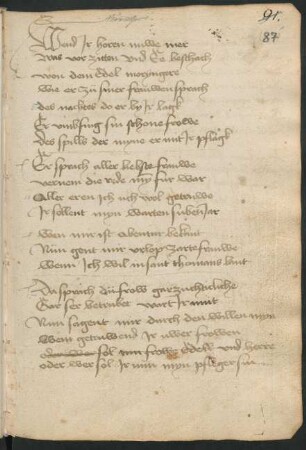 91.
87
Wend Ir horen nuwe mer
Was vor zitten vnd Ee beschach
von dem Edel moringer
wie er zu siner frauwen sprach
des nachtes do er by Ir lagk
Er vmbfing sin schone frowe
des spills der myne er mit Ir pflagk
Er sprach aller liebste frauwe
vernem die rede myn fur war
Aller eren Ich uch wol getruwe
Ir sollent myn warten suben Jar
wen mir ist abentur bekant
Nun gent mir vrlop zarte frauwe
wenn Ich wil in sant thomans lant
Da sprach die frow gar zuchticliche
Gar ser betrubet wart Ir mut
Nun sagent mir durch den willen myn
Wem getruwend Ir uwer frowen
sol mir frow Edell vnd herre
oder wer sol Ir nun myn pfleger sin